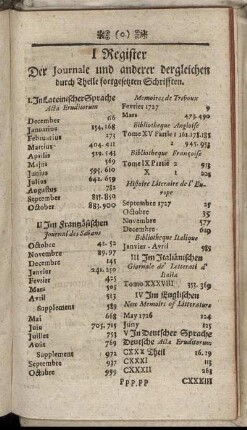 (o)
I Register
Der Journale und anderer dergleichen
durch Theile fortgesetzten Schrifften.
I. In Lateinischer Sprache
Acta Eruditorum
December 66
Januarius 154.168
Februarius 275
Martius 404.411
Aprilis
Majus 569
Junius 595.610
Julius 642.659
Augustus 782
September 817.850
October 883.900
II Im Frantzösischen
Journal des Savans
October 42.52
Novembre 89.97
Decembre 145
Janvier 241.250
Fevrier 425
Mars 505
Avril 513
Supplement 589
Mai 668
Juin 705.715
Juillet 753
Août 769
Supplement 972
Septembre 937
Octobre 999
Memoires de Trevoux
Fevrier 1727 9
Mars 473.490
Bibliotheque Angloise
Tome XV Partie 1 161.178.185
2 945.954
Bibliotheque Françoise
Tome IX Partie 2 918
X 1 204
Histoire Litteraire de l'Eu-
rope
Septembre 1727 25
Octobre 35
Novembre 577
Decembre 619
Bibliotheque Italique
Janvier-Avril 985
III Im Italiänischen
Giornale de' Letterati d'
Italia
Tomo XXXVIII 357.369
IV Im Englischen
New Memoirs of Litterature
May 1726 114
Juny 125
V In Deutscher Sprache
Deutsche Acta Eruditorum
CXXX Theil 16.19
CXXXI 113
CXXXII 263
ppp.pp CXXXIII